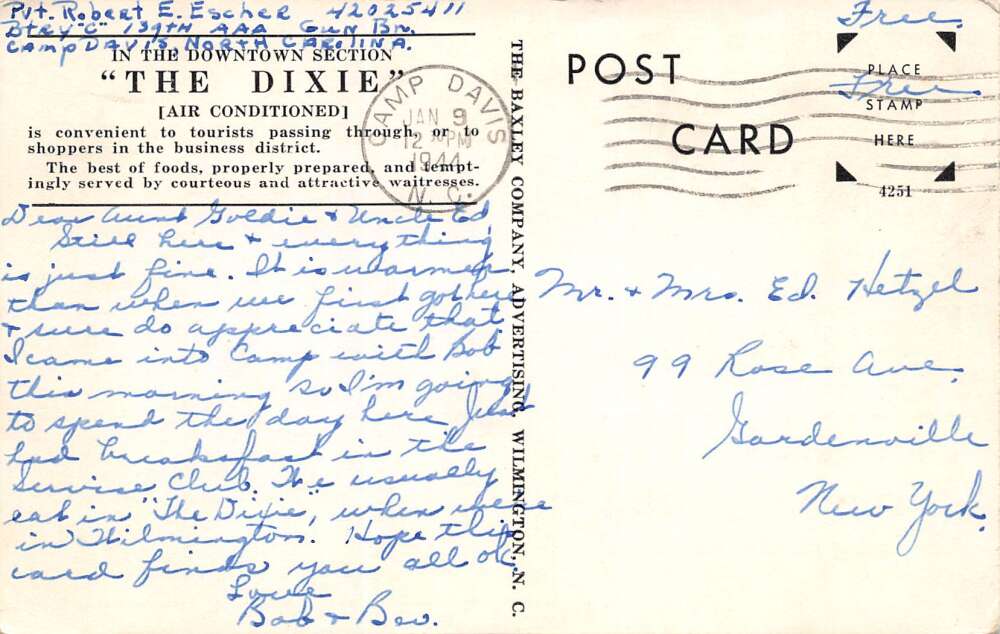 Pvt. Robert E. Escher 42025411
Btry "C" 139th AAA Gun Bn.
Camp Davis, North Carolina.
IN THE DOWNTOWN SECTION
"THE DIXIE"
[AIR CONDITIONED]
is convenient to tourists passing through, or to
shoppers in the business district.
The best of foods, properly prepared, and tempt-
ingly served by courteous and attractive waitresses.
Dear Aunt Goldie & Uncle Ed,
Still here & everything
is just fine. It is warmer
than when we first got here
& sure do appreciate that.
I came into Camp with Bob
this morning so I'm going
to spend the day here. Just
had breakfast in the
Service Club. We usually
eat in "The Dixie", when we're
in Wilmington. Hope this
card finds you all ok.
Love
Bob & Bev.
THE BAXLEY COMPANY, ADVERTISING, WILMINGTON, N. C.
CAMP DAVIS
JAN 9
12 30 PM
1944
N. C.
POST
CARD
Free.
PLACE
Free
STAMP
HERE
4251
Mr. & Mrs. Ed. Hetzel
99 Rose Ave.
Gardenville
New York.